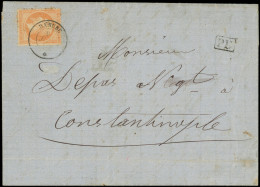 Monsieur
PD
Depas Negt à
Constantinople